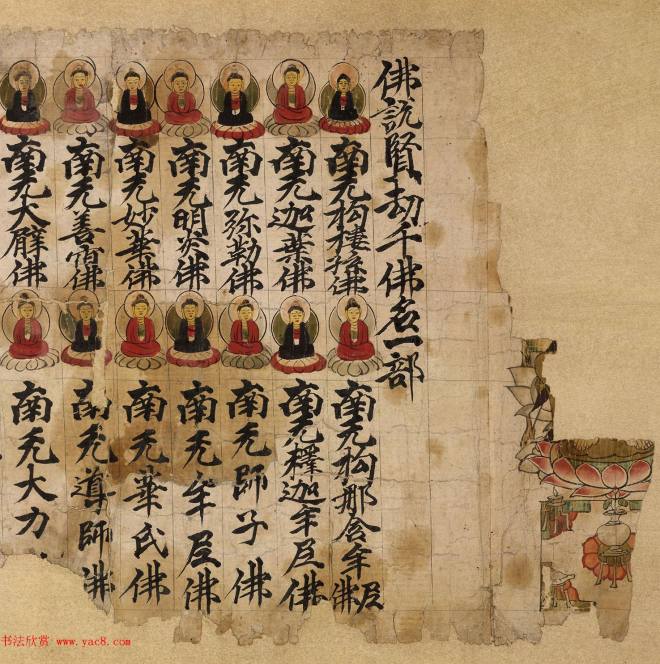 佛説賢劫千佛名一部
南无拘樓孫佛
南无拘那含牟尼佛
南无迦葉佛
南无釋迦牟尼佛
南无弥勒佛
南无師子佛
南无明炎佛
南无牟尼佛
南无妙華佛
南无華氏佛
南无善宿佛
南无導師佛
南无大臂佛
南无大力
书法欣赏 www.yac8.com